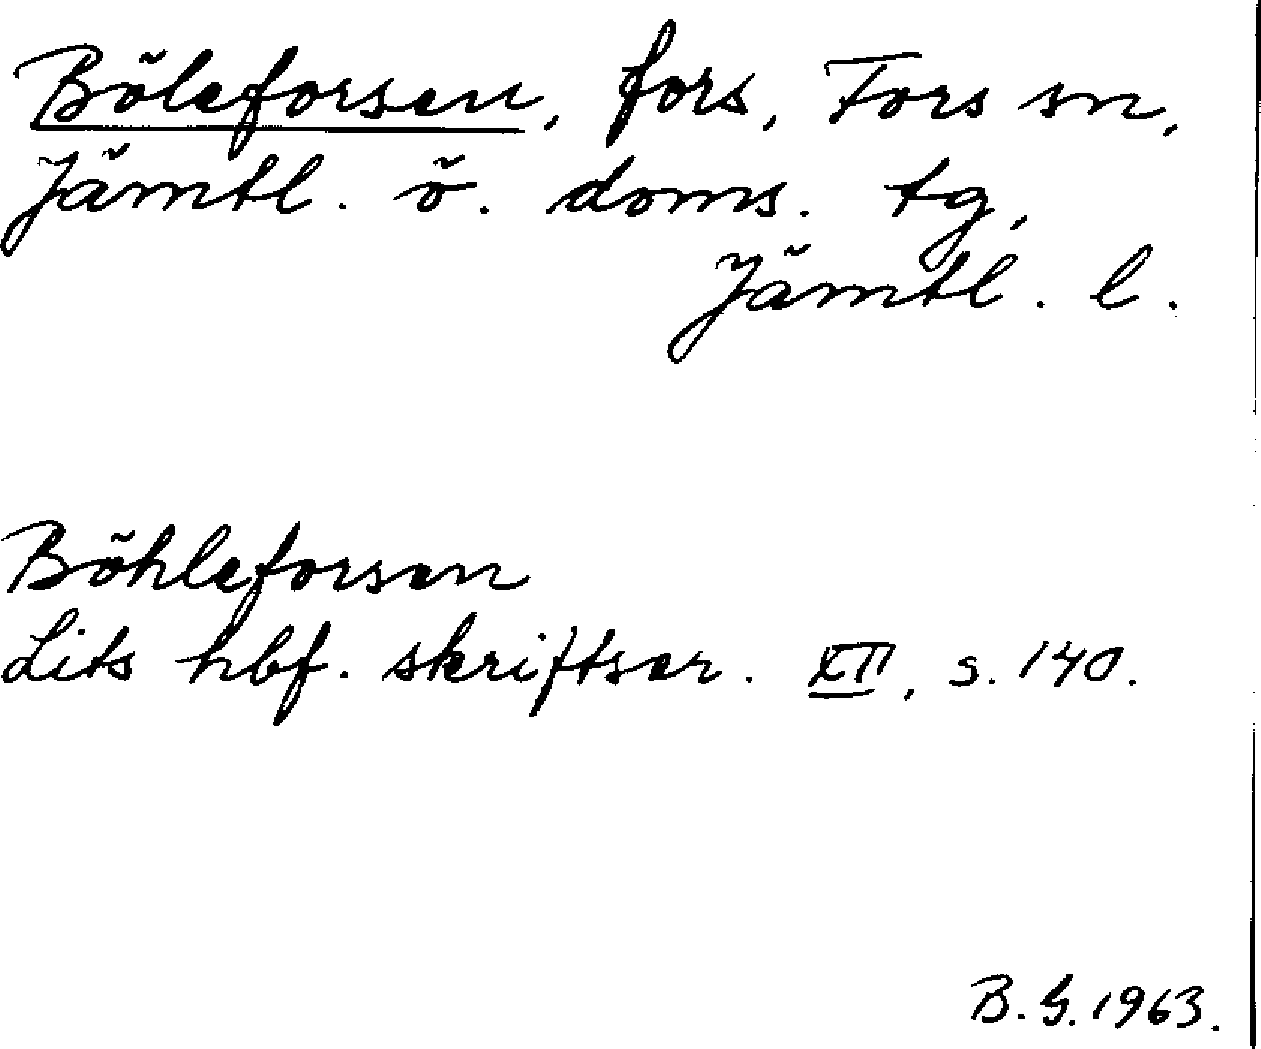 Böleforsen, fors, Fors sn,
Jämtl. ö. doms. tg,
Jämtl. l.
Böhleforsen
Lits hbf. skriftser. XII, s. 140.
B. G. 1963.